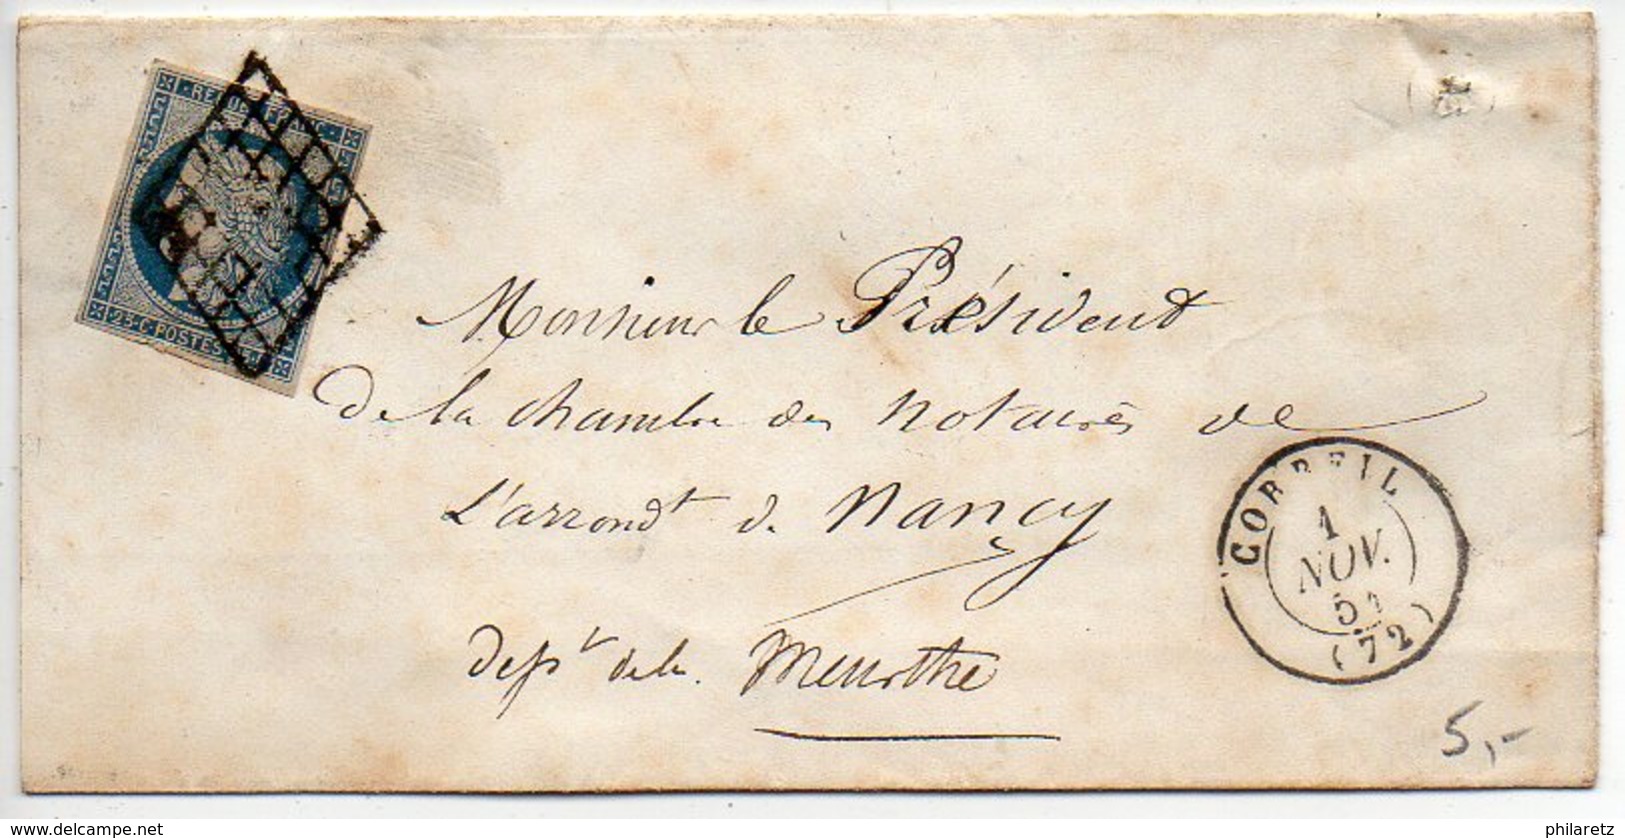 REPUB. FRANC.
25·C·POSTES·25·C
Monsieur le Président
de la chambre des notaires de
L'arrondt de Nancy
dept de la Meurthe
CORBEIL
1
NOV.
51
(72)
5,-
delcampe.net
philaretz